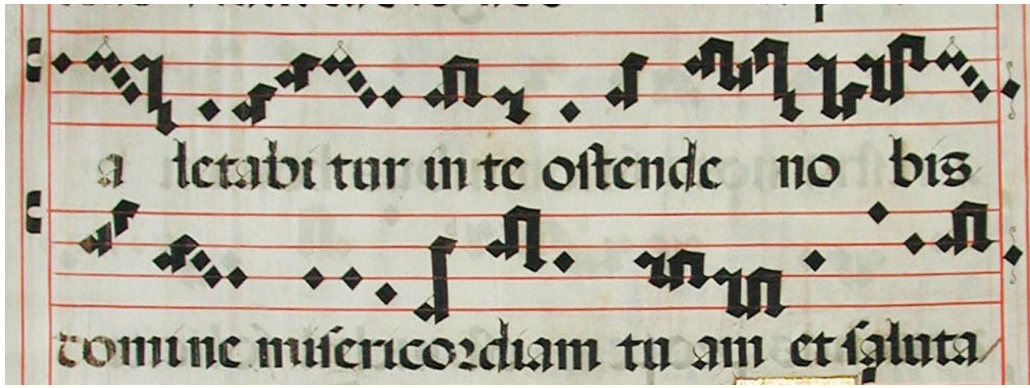 a letabitur in te ostende no bis
domine misericordiam tu am et saluta